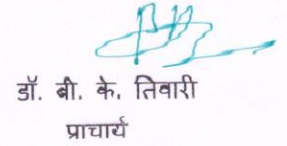 डॉ. बी. के. तिवारी
प्राचार्य